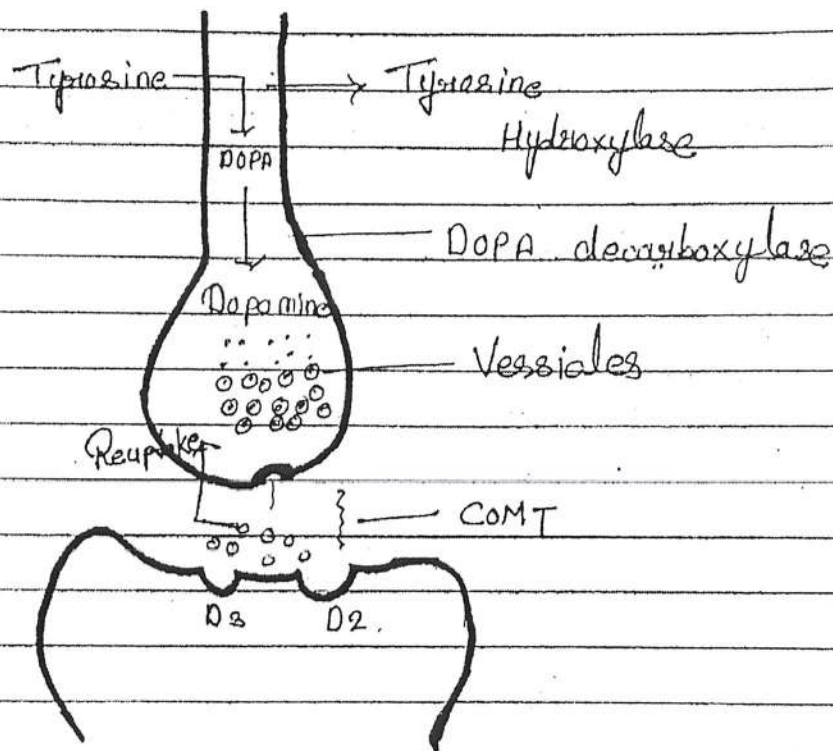 Tyrosine
Tyrosine
Hydroxylase
DOPA
DOPA decarboxylase
Dopamine
Vessiales
Reuptake
COMT
D3
D2.